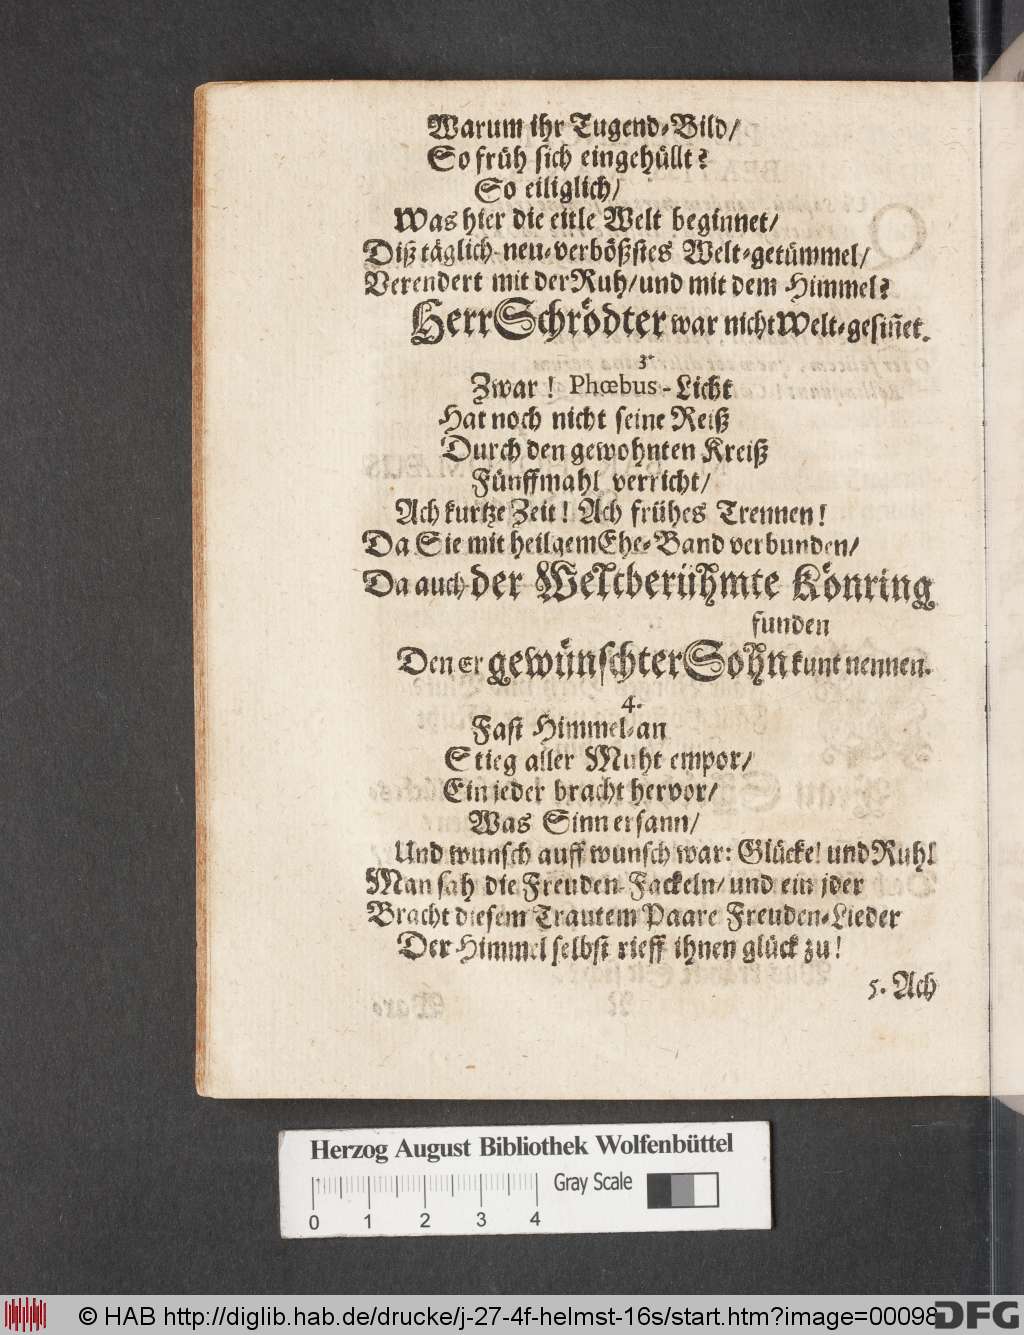 Warum ihr Tugend-Bild/
So früh sich eingehüllt?
So eiliglich/
Was hier die eitle Welt beginnet/
Diß täglich-neu-verbößstes Welt-getümmel/
Verendert mit der Ruh/und mit dem Himmel?
Herr Schrödter war nicht Welt-gesiñet.
3.
Zwar! Phœbus-Licht
Hat noch nicht seine Reiß
Durch den gewohnten Kreiß
Fünffmahl verricht/
Ach kurtze Zeit! Ach frühes Trennen!
Da Sie mit heilgem Ehe-Band verbunden/
Da auch der Weltberühmte Könring
funden
Den er gewünschter Sohn kunt nennen.
4.
Fast Himmel-an
Stieg aller Muht empor/
Ein jeder bracht hervor/
Was Sinn ersann/
Und wunsch auff wunsch war: Glücke! und Ruh!
Man sah die Freuden-Fackeln/und ein jder
Bracht diesem Trautem Paare Freuden-Lieder
Der Himmel selbst rieff ihnen glück zu!
5. Ach
Herzog August Bibliothek Wolfenbüttel
Gray Scale
0 1 2 3 4
© HAB http://diglib.hab.de/drucke/j-27-4f-helmst-16s/start.htm?image=00098
DFG